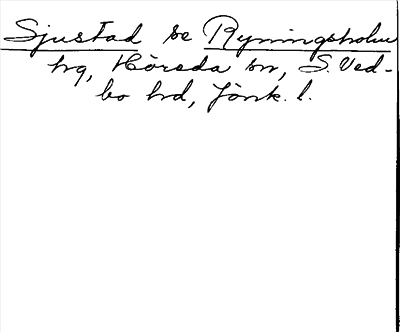 Sjustad se Ryningsholm
hg, Höreda sn, S. Ved-
bo hd, Jönk. l.